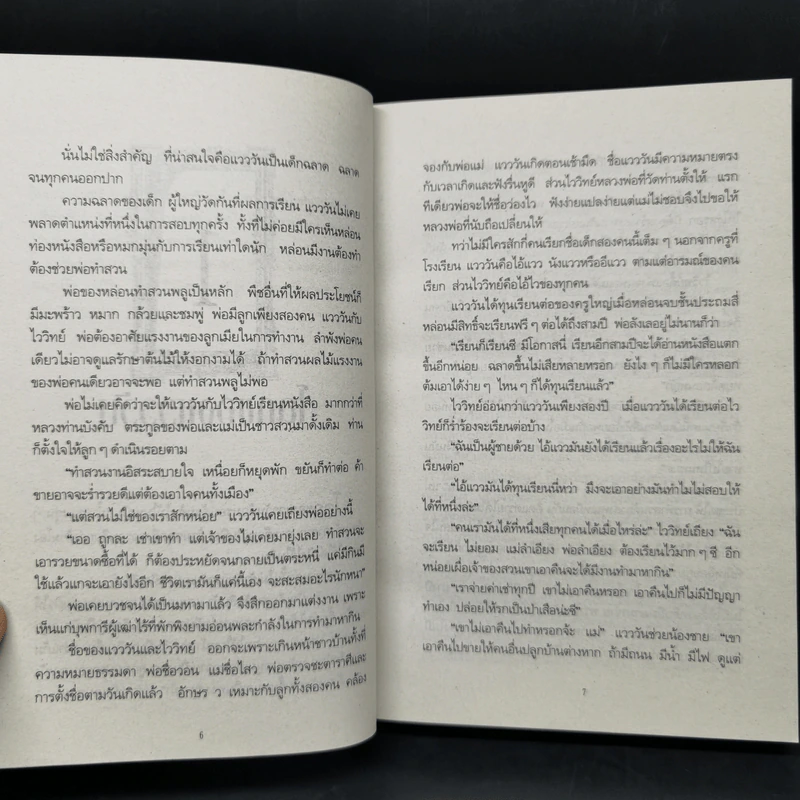 นั่นไม่ใช่สิ่งสำคัญ ที่น่าสนใจคือแววันเป็นเด็กฉลาด ฉลาด
จนทุกคนออกปาก
ความฉลาดของเด็ก ผู้ใหญ่วัดกันที่ผลการเรียน แววันไม่เคย
พลาดตำแหน่งที่หนึ่งในการสอบทุกครั้ง ทั้งที่ไม่ค่อยมีใครเห็นหล่อน
ท่องหนังสือหรือหมกมุ่นกับการเรียนเท่าใดนัก หล่อนมีงานต้องทำ
ต้องช่วยพ่อทำสวน
พ่อของหล่อนทำสวนพลูเป็นหลัก พืชอื่นที่ให้ผลประโยชน์ก็
มีมะพร้าว หมาก กล้วยและชมพู่ พ่อมีลูกเพียงสองคน แววันกับ
ไววิทย์ พ่อต้องอาศัยแรงงานของลูกเมียในการทำงาน ลำพังพ่อคน
เดียวไม่อาจดูแลรักษาต้นไม้ให้งอกงามได้ ถ้าทำสวนผลไม้แรงงาน
ของพ่อคนเดียวอาจจะพอ แต่ทำสวนพลูไม่พอ
พ่อไม่เคยคิดว่าจะให้แววันกับไววิทย์เรียนหนังสือ มากกว่าที่
หลวงท่านบังคับ ตระกูลของพ่อและแม่เป็นชาวสวนมาดั้งเดิม ท่าน
ก็ตั้งใจให้ลูก ๆ ดำเนินรอยตาม
“ทำสวนงานอิสระสบายใจ เหนื่อยก็หยุดพัก ขยันก็ทำต่อ ค้า
ขายอาจจะร่ำรวยดีแต่ต้องเอาใจคนทั้งเมือง”
“แต่สวนไม่ใช่ของเราสักหน่อย” แววันเคยเถียงพ่ออย่างนี้
“เออ ถูกละ เช่าเขาทำ แต่เจ้าของไม่เคยมายุ่งเลย ทำสวนจะ
เอารวยขนาดซื้อที่ได้ ก็ต้องประหยัดจนกลายเป็นตระหนี่ แค่มีกินมี
ใช้แล้วแกจะเอายังไงอีก ชีวิตเรามันก็แค่นี้เอง จะสะสมอะไรนักหนา”
พ่อเคยบวชจนได้เป็นมหามาแล้ว จึงสึกออกมาแต่งงาน เพราะ
เห็นแก่บุพการีผู้เฒ่าไร้ที่พักพิงยามอ่อนพละกำลังในการทำมาหากิน
ชื่อของแววันและไววิทย์ ออกจะเพราะเกินหน้าชาวบ้านทั้งที่
ความหมายธรรมดา พ่อชื่อวอน แม่ชื่อไสว พ่อตรวจชะตาราศีและ
การตั้งชื่อตามวันเกิดแล้ว อักษร ว เหมาะกับลูกทั้งสองคน คล้อง
6
จองกับพ่อแม่ แววันเกิดตอนเช้ามืด ชื่อแววันมีความหมายตรง
กับเวลาเกิดและฟังรื่นหูดี ส่วนไววิทย์หลวงพ่อที่วัดท่านตั้งให้ แรก
ทีเดียวพ่อจะให้ชื่อว่องไว ฟังง่ายแปลง่ายแต่แม่ไม่ชอบจึงไปขอให้
หลวงพ่อที่นับถือเปลี่ยนให้
ทว่าไม่มีใครสักกี่คนเรียกชื่อเด็กสองคนนี้เต็ม ๆ นอกจากครูที่
โรงเรียน แววันคือไอ้แวว นังแววหรืออีแวว ตามแต่อารมณ์ของคน
เรียก ส่วนไววิทย์คือไอ้ไวของทุกคน
แววันได้ทุนเรียนต่อของครูใหญ่เมื่อหล่อนจบชั้นประถมสี่
หล่อนมีสิทธิ์จะเรียนฟรี ๆ ต่อได้ถึงสามปี พ่อลังเลอยู่ไม่นานก็ว่า
“เรียนก็เรียนซี มีโอกาสนี่ เรียนอีกสามปีจะได้อ่านหนังสือแตก
ขึ้นอีกหน่อย ฉลาดขึ้นไม่เสียหลายหรอก ยังไง ๆ ก็ไม่มีใครหลอก
ต้มเอาได้ง่าย ๆ ไหน ๆ ก็ได้ทุนเรียนแล้ว”
ไววิทย์อ่อนกว่าแววันเพียงสองปี เมื่อแววันได้เรียนต่อไว
วิทย์ก็ร่ำร้องจะเรียนต่อบ้าง
“ฉันเป็นผู้ชายด้วย ไอ้แววมันยังได้เรียนแล้วเรื่องอะไรไม่ให้ฉัน
เรียนต่อ”
“ไอ้แววมันได้ทุนเรียนนี่หว่า มึงจะเอาอย่างมันทำไมไม่สอบให้
ได้ที่หนึ่งล่ะ”
“คนเรามันได้ที่หนึ่งเสียทุกคนได้เมื่อไหร่ล่ะ” ไววิทย์เถียง “ฉัน
จะเรียน ไม่ยอม แม่ลำเอียง พ่อลำเอียง ต้องเรียนไว้มาก ๆ ซี อีก
หน่อยเผื่อเจ้าของสวนเขาเอาคืนจะได้มีงานทำมาหากิน”
“เราจ่ายค่าเช่าทุกปี เขาไม่เอาคืนหรอก เอาคืนไปก็ไม่มีปัญญา
ทำเอง ปล่อยให้รกเป็นป่าเสือน่ะซี”
“เขาไม่เอาคืนไปทำหรอกจ้ะ แม่” แววันช่วยน้องชาย “เขา
เอาคืนไปขายให้คนอื่นปลูกบ้านต่างหาก ถ้ามีถนน มีน้ำ มีไฟ ดูแต่
7